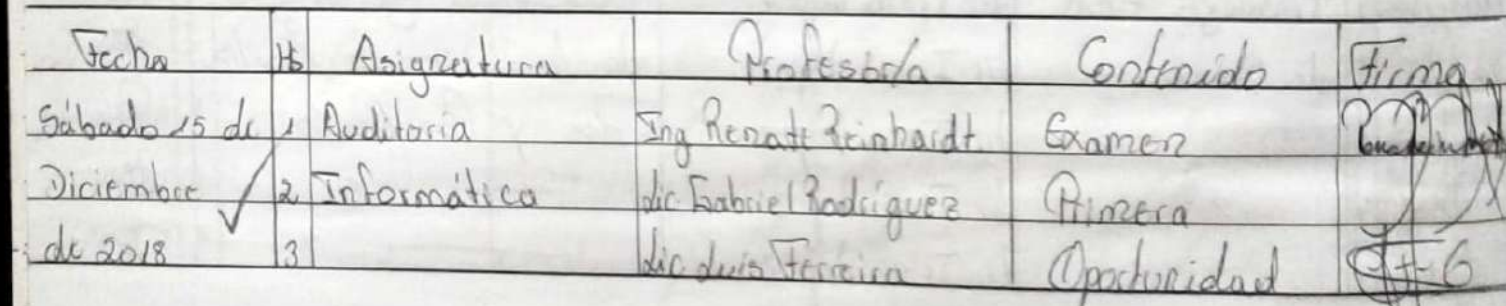 Fecha Hs Asignatura Profesor/a Contenido Firma
Sábado 15 de 1 Auditoria Ing Renate Reinhardt Examen
Diciembre 2 Informática Lic Gabriel Rodríguez Primera
de 2018 3 Lic Luis Ferreira Oportunidad